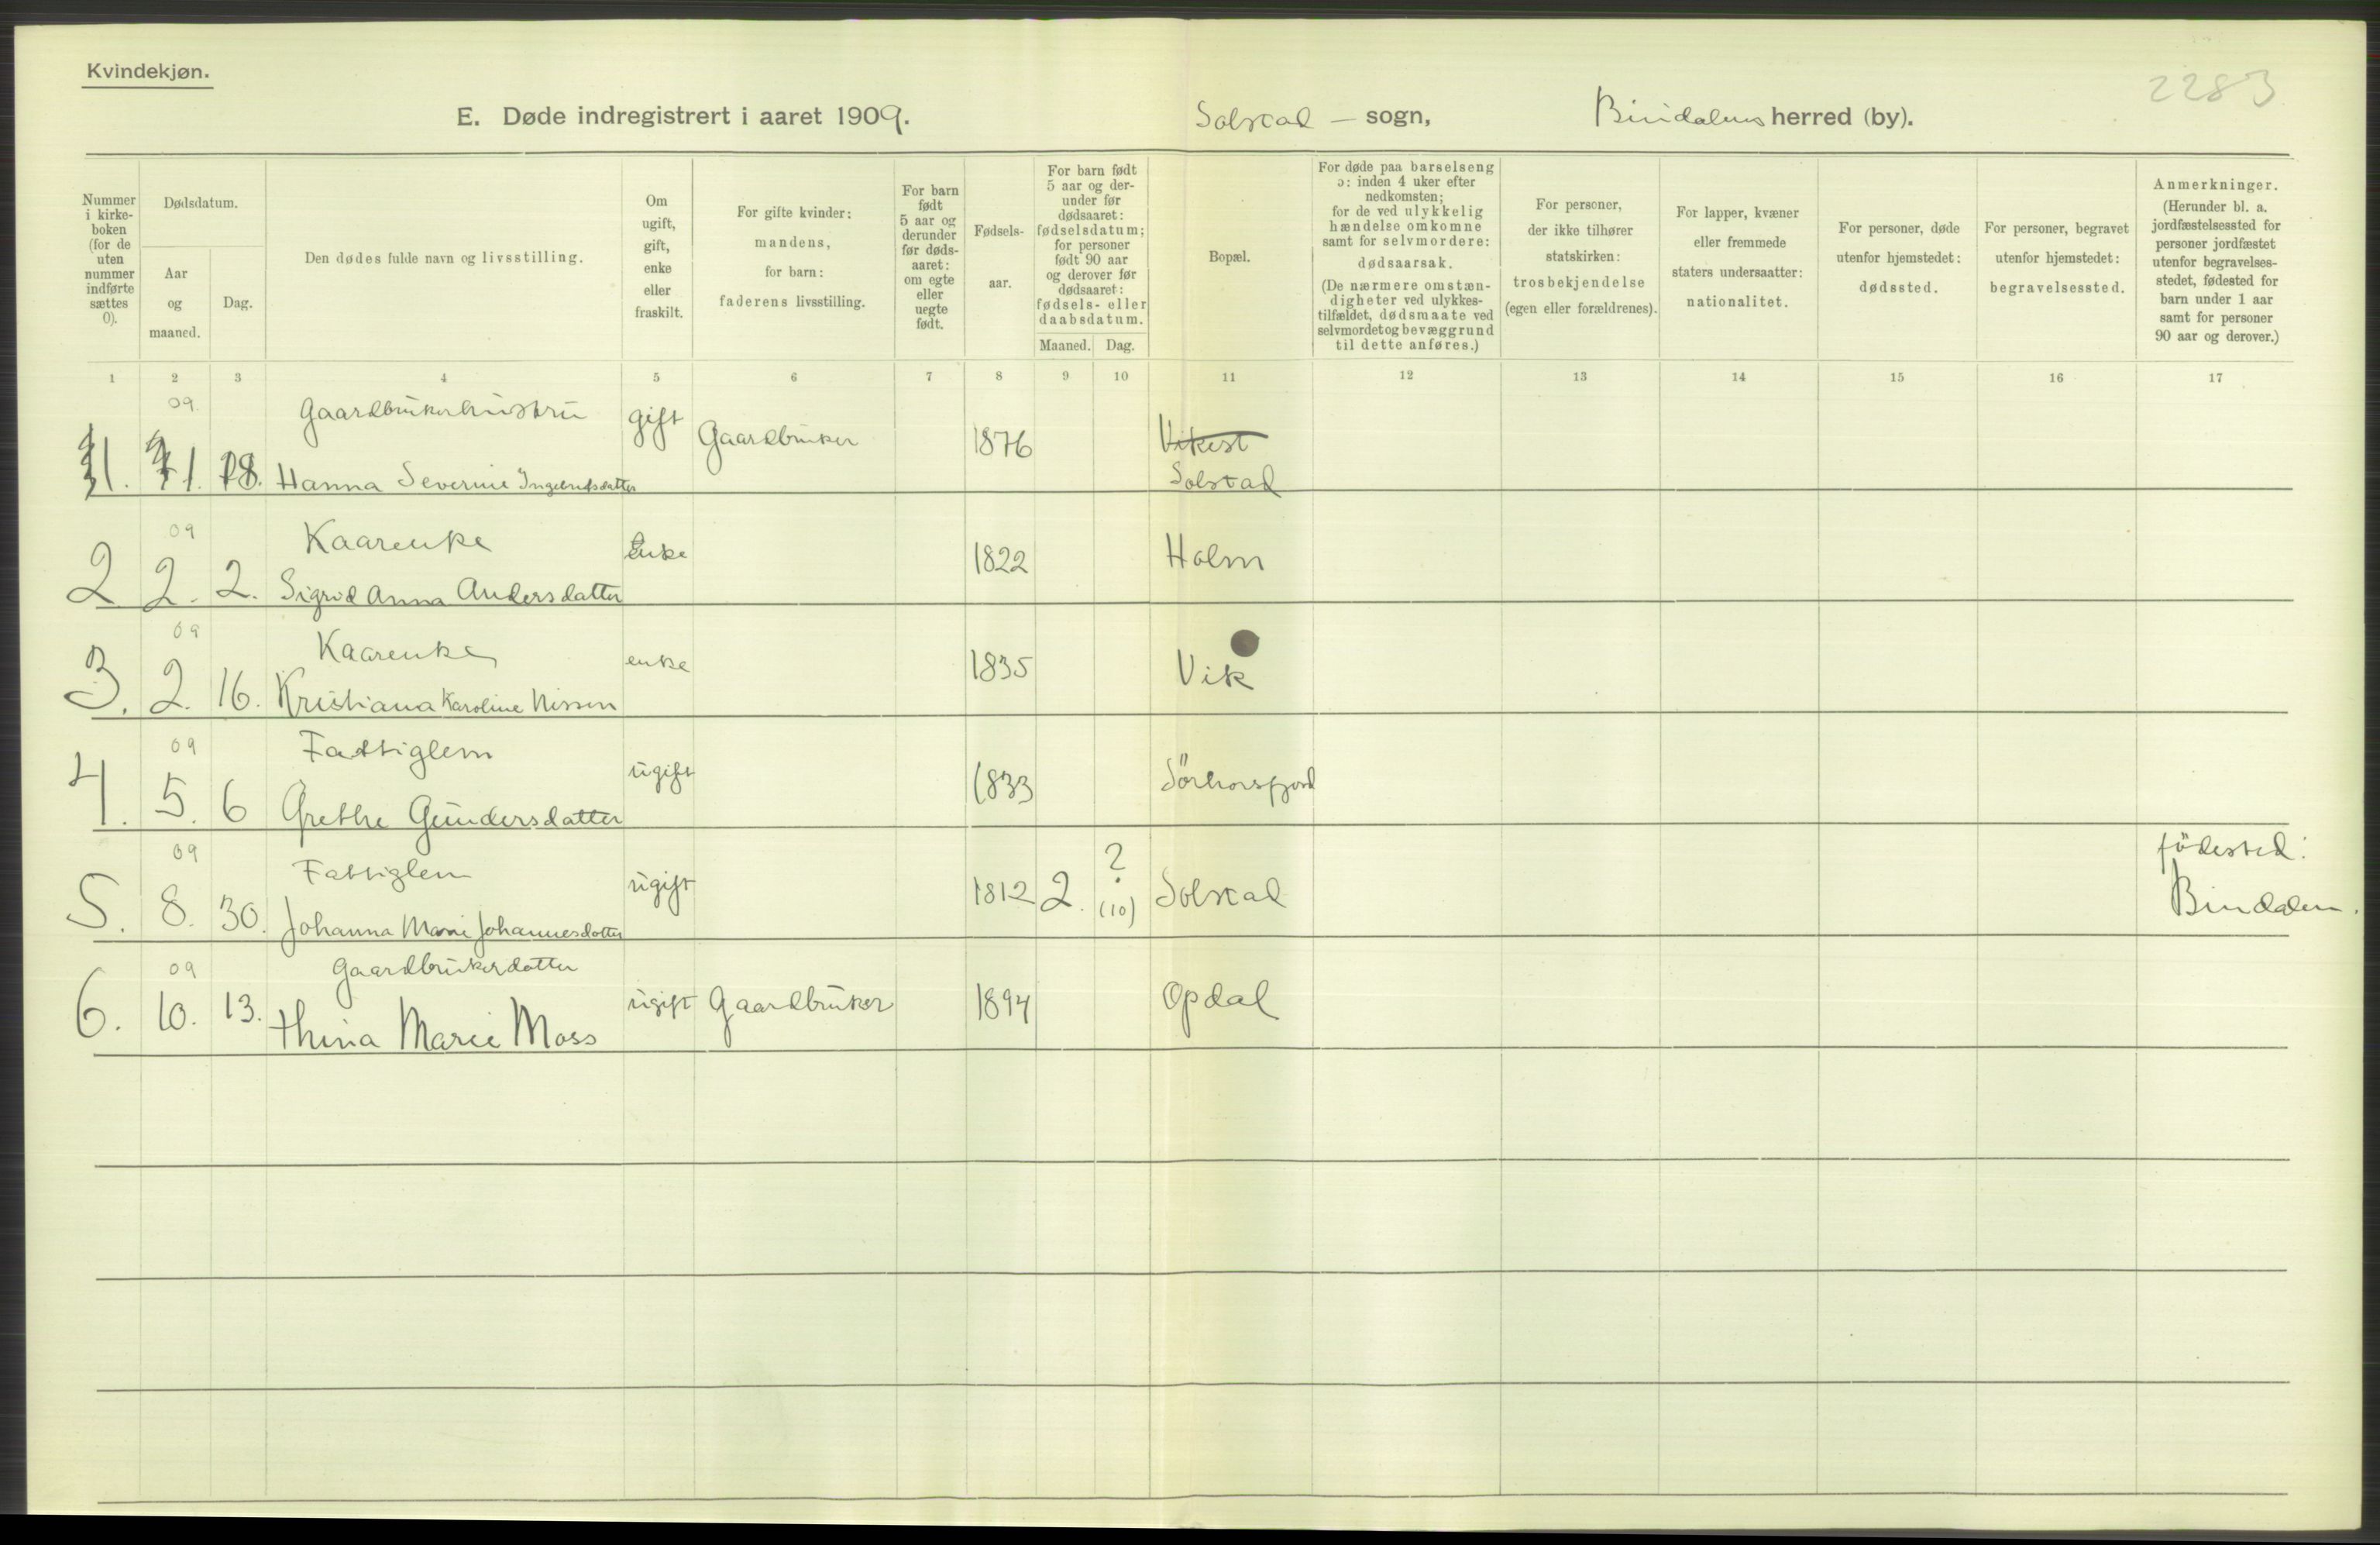 Kvindekjøn.
2283
E. Døde indregistrert i aaret 1909. Solstad – sogn, Bindalens herred (by).
Nummer i kirke- boken (for de uten nummer indførte sættes 0).
Dødsdatum.
Aar og maaned.
Dag.
Den dødes fulde navn og livsstilling.
Om ugift, gift, enke eller fraskilt.
For gifte kvinder: mandens, for barn: faderens livsstilling.
For barn født 5 aar og derunder før døds- aaret: om egte eller uegte født.
Fødsels- aar.
For barn født 5 aar og der- under før dødsaaret: fødselsdatum; for personer født 90 aar og derover før dødsaaret: fødsels- eller daabsdatum.
Maaned. Dag.
Bopæl.
For døde paa barselseng ɔ: inden 4 uker efter nedkomsten; for de ved ulykkelig hændelse omkomne samt for selvmordere: dødsaarsak. (De nærmere omstæn- digheter ved ulykkes- tilfældet, dødsmaate ved selvmordet og bevæggrund til dette anføres.)
For personer, der ikke tilhører statskirken: trosbekjendelse (egen eller forældrenes).
For lapper, kvæner eller fremmede staters undersaatter: nationalitet.
For personer, døde utenfor hjemstedet: dødssted.
For personer, begravet utenfor hjemstedet: begravelsessted.
Anmerkninger. (Herunder bl. a. jordfæstelsessted for personer jordfæstet utenfor begravelses- stedet, fødested for barn under 1 aar samt for personer 90 aar og derover.)
1 2 3 4 5 6 7 8 9 10 11 12 13 14 15 16 17
09 Gaardbrukerhustru gift Gaardbruker 1876 Vikest
1. 1. 18. Hanna Severine Ingebrigtsdatter Solstad
09 Kaarenke enke 1822 Holm
2 2. 2. Sigrid Anna Andersdatter
09 Kaarenke enke 1835 Vik
3. 2. 16. Kristiana Karoline Nissen
09 Fattiglem ugift 1833 Sörhorsfjord
4. 5. 6 Grethe Gundersdatter
09 Fattiglem ugift 1812 2. ? (10) Solstad födested:
5. 8. 30. Johanna Marie Johannesdatter Bindalen.
09 Gaardbrukerdatter ugift Gaardbruker 1894 Opdal
6. 10. 13. Thina Marie Moss